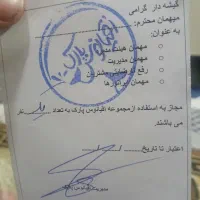 گیشه دار گرامی
میهمان محترم:
به عنوان:
مهمان هیئت مدیره
مهمان مدیریت
رفع نارضایتی مشتریان
مهمان اپراتورها
مجاز به استفاده از مجموعه اقیانوس پارک به تعداد نفر
می باشند.
اعتبار تا تاریخ
مدیریت اقیانوس پارک